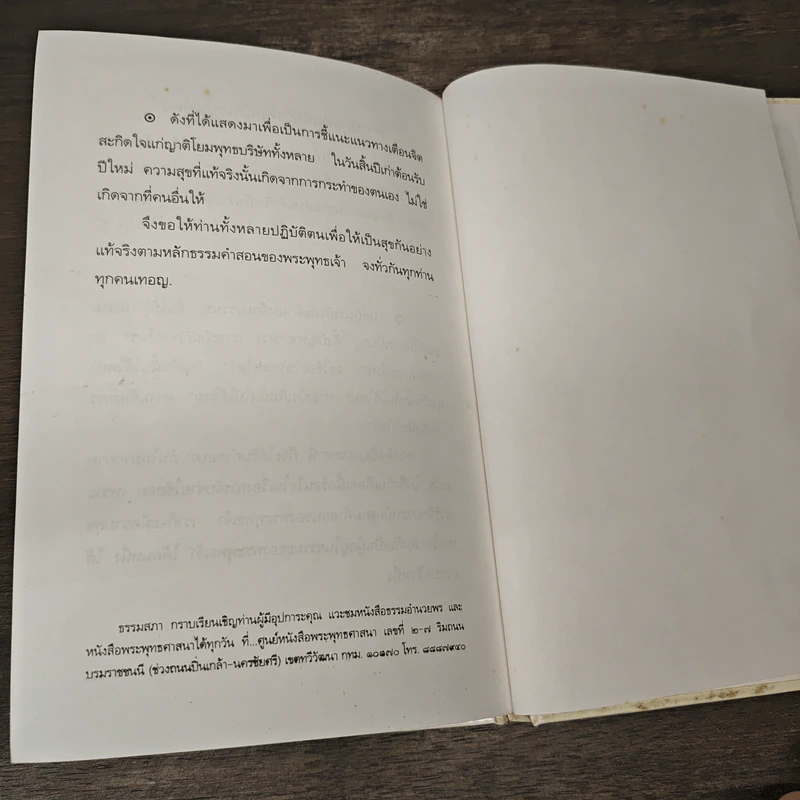 ๏ ดังที่ได้แสดงมาเพื่อเป็นการชี้แนะแนวทางเตือนจิต
สะกิดใจแก่ญาติโยมพุทธบริษัททั้งหลาย ในวันสิ้นปีเก่าต้อนรับ
ปีใหม่ ความสุขที่แท้จริงนั้นเกิดจากการกระทำของตนเอง ไม่ใช่
เกิดจากที่คนอื่นให้
จึงขอให้ท่านทั้งหลายปฏิบัติตนเพื่อให้เป็นสุขกันอย่าง
แท้จริงตามหลักธรรมคำสอนของพระพุทธเจ้า จงทั่วกันทุกท่าน
ทุกคนเทอญ.
ธรรมสภา กราบเรียนเชิญท่านผู้มีอุปการะคุณ แวะชมหนังสือธรรมอำนวยพร และ
หนังสือพระพุทธศาสนาได้ทุกวัน ที่...ศูนย์หนังสือพระพุทธศาสนา เลขที่ ๒-๗ ริมถนน
บรมราชชนนี (ช่วงถนนปิ่นเกล้า-นครชัยศรี) เขตทวีวัฒนา กทม. ๑๐๑๗๐ โทร. ๘๘๘๗๙๔๐